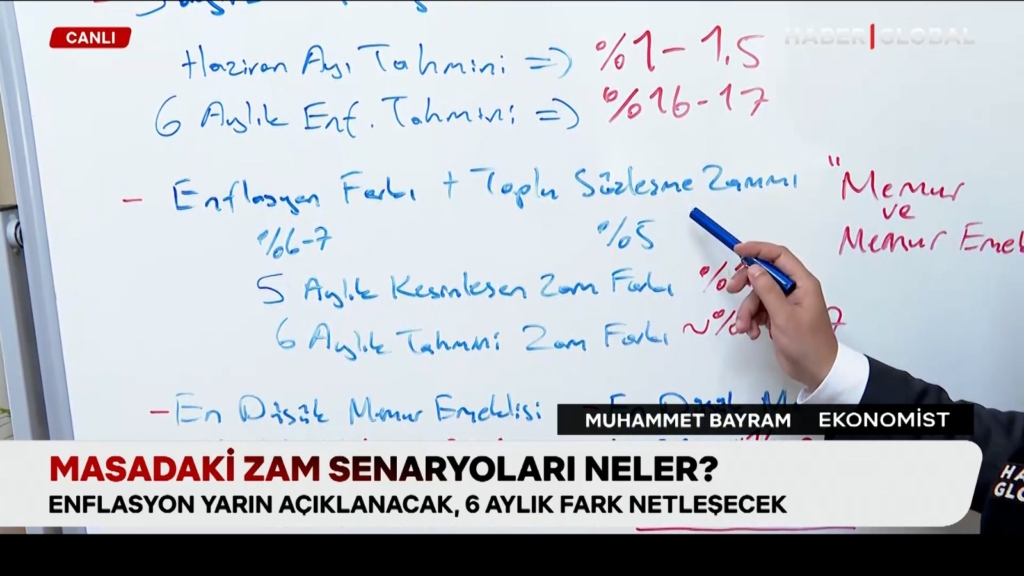 CANLI
HABER GLOBAL
Haziran Ayı Tahmini => %1-1.5
6 Aylık Enf. Tahmini => %16-17
- Enflasyon Farkı + Toplu Sözleşme Zammı
%6-7 %5
"Memur
ve
Memur Emek
5 Aylık Kesinleşen Zam Farkı
6 Aylık Tahmini Zam Farkı
- En Düşük Memur Emeklisi
MUHAMMET BAYRAM EKONOMİST
MASADAKİ ZAM SENARYOLARI NELER?
ENFLASYON YARIN AÇIKLANACAK, 6 AYLIK FARK NETLEŞECEK